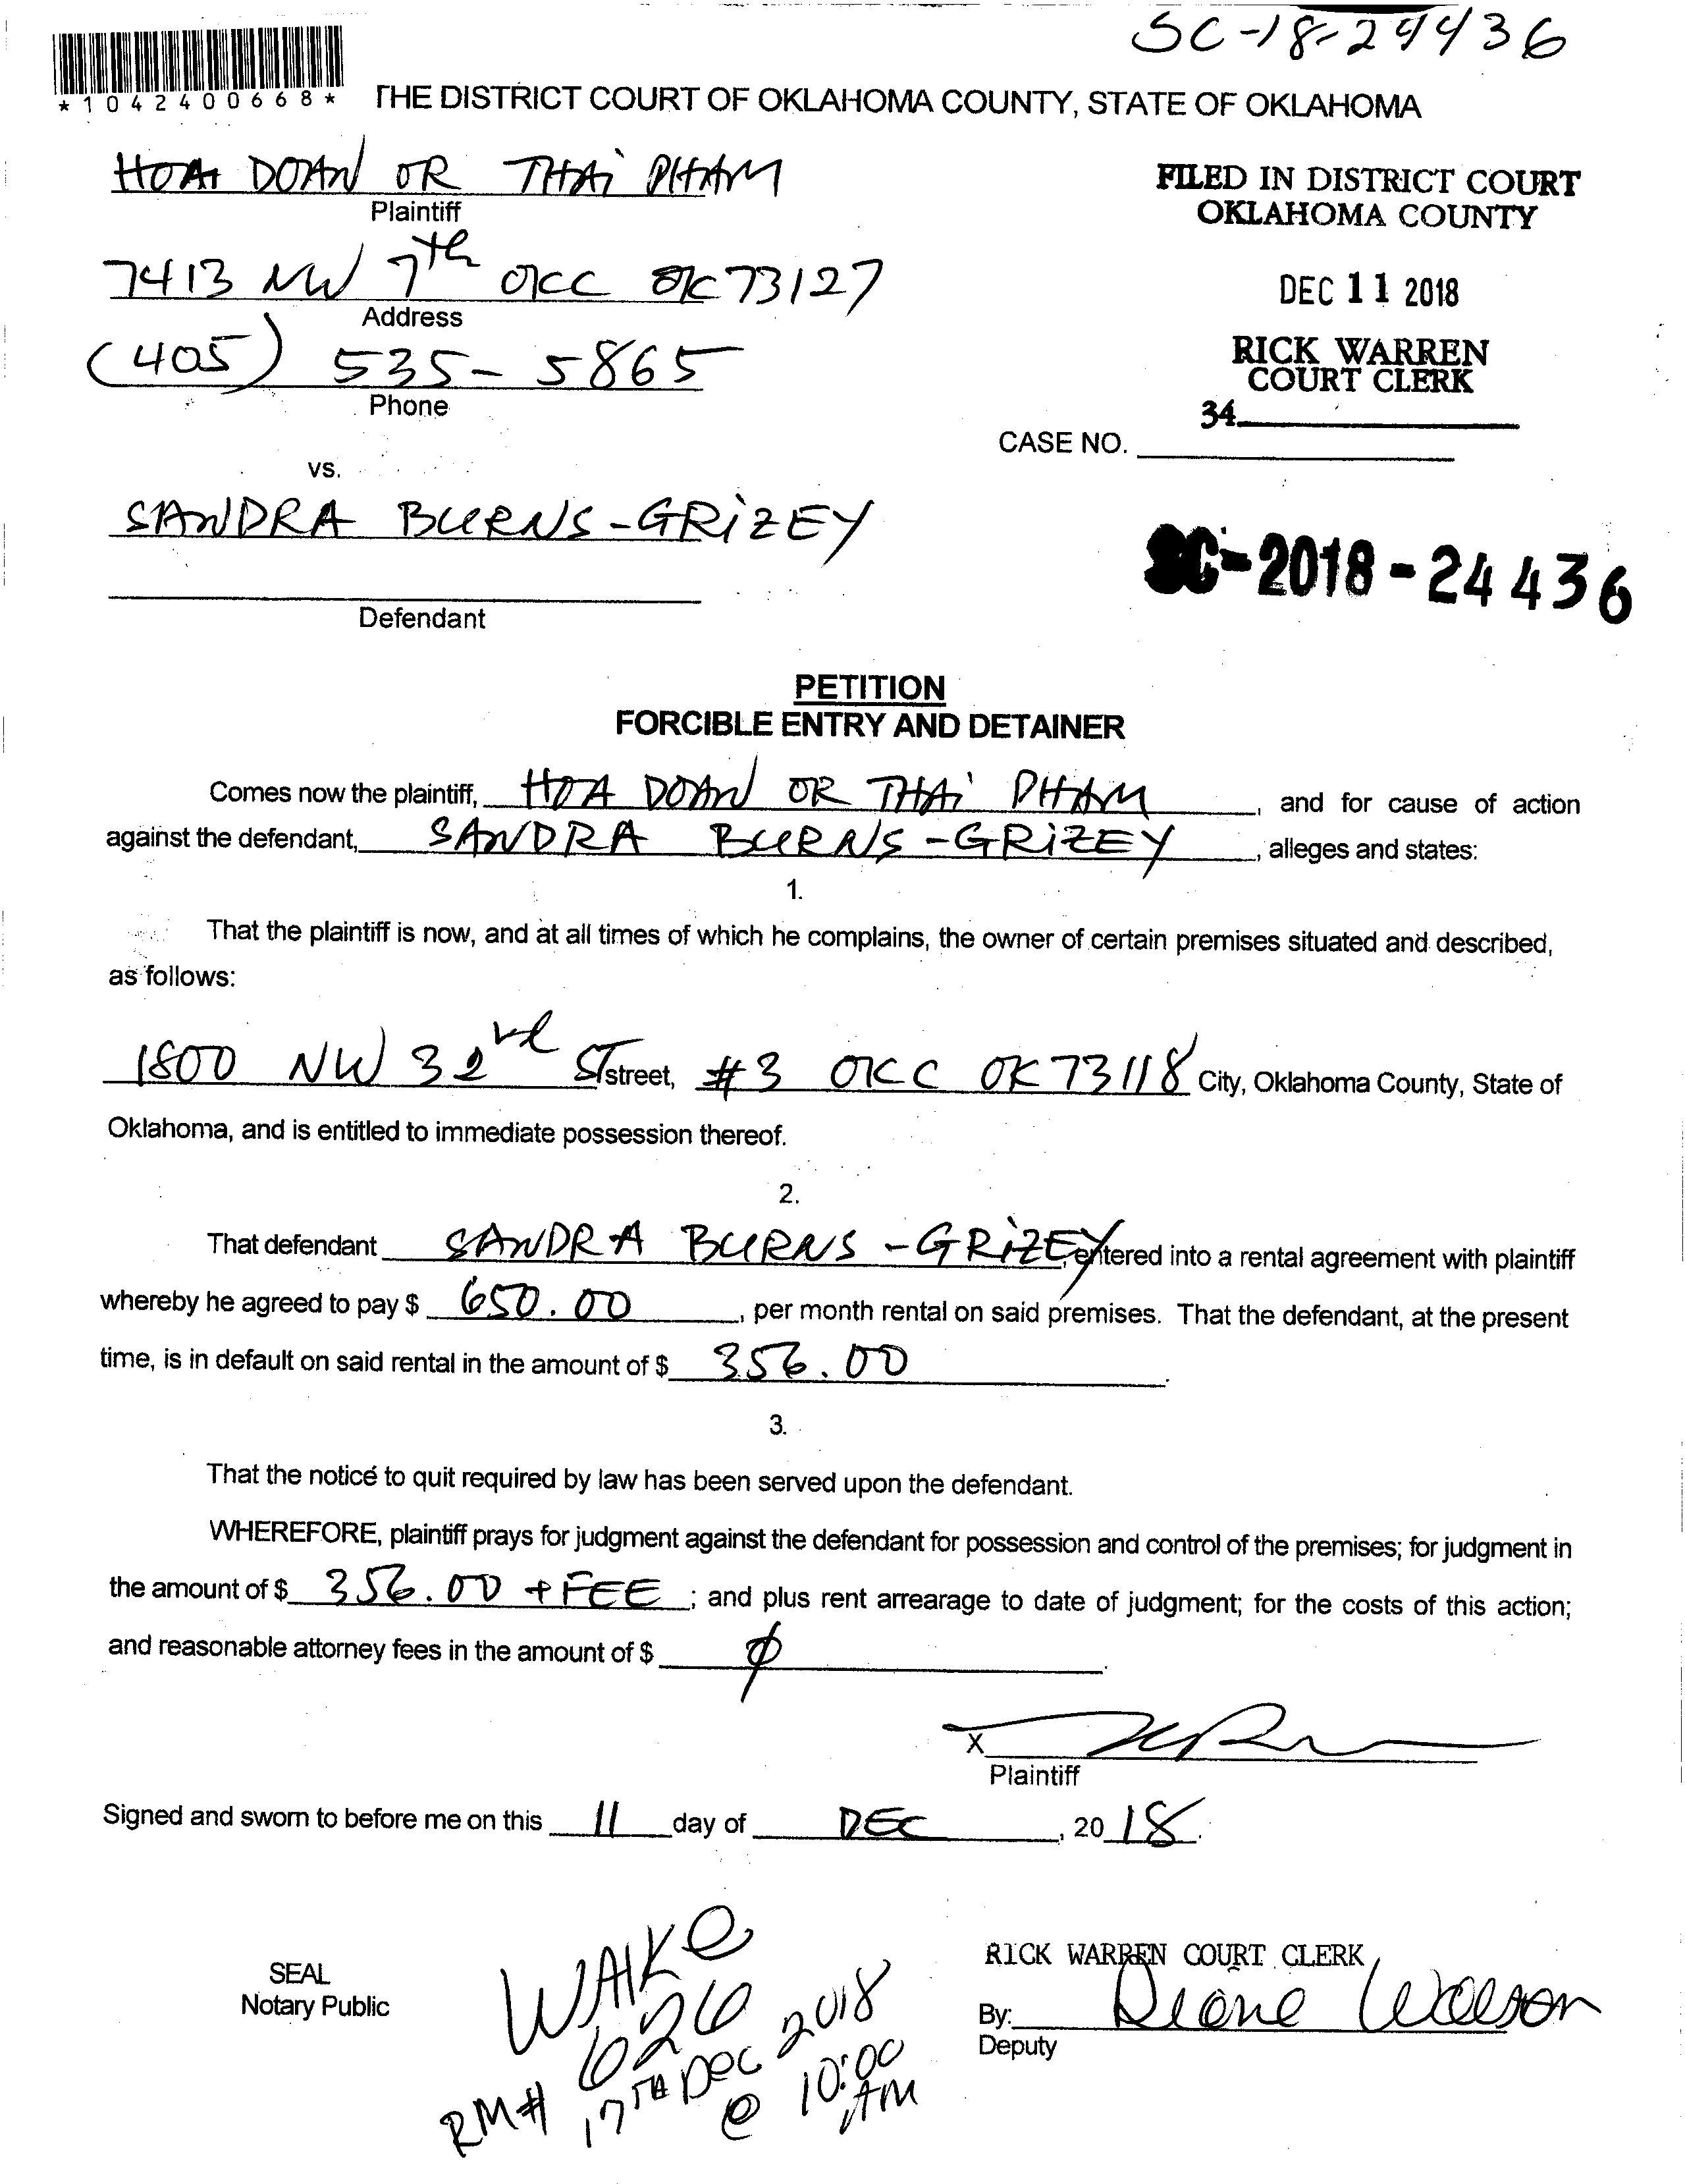 SC-18-24436
*1042400668*
THE DISTRICT COURT OF OKLAHOMA COUNTY, STATE OF OKLAHOMA
HOA DOAN OR THAI PHAM
Plaintiff
FILED IN DISTRICT COURT
OKLAHOMA COUNTY
7413 NW 7th OKC OK 73127
Address
DEC 11 2018
(405) 535-5865
Phone
RICK WARREN
COURT CLERK
34
CASE NO.
vs.
SANDRA BURNS-GRIZEY
Defendant
SC-2018-24436
PETITION
FORCIBLE ENTRY AND DETAINER
Comes now the plaintiff, HOA DOAN OR THAI PHAM, and for cause of action
against the defendant, SANDRA BURNS-GRIZEY, alleges and states:
1.
That the plaintiff is now, and at all times of which he complains, the owner of certain premises situated and described,
as follows:
1800 NW 32rd ST street, #3 OKC OK 73118 City, Oklahoma County, State of
Oklahoma, and is entitled to immediate possession thereof.
2.
That defendant SANDRA BURNS-GRIZEY, entered into a rental agreement with plaintiff
whereby he agreed to pay $ 650.00, per month rental on said premises. That the defendant, at the present
time, is in default on said rental in the amount of $ 356.00.
3.
That the notice to quit required by law has been served upon the defendant.
WHEREFORE, plaintiff prays for judgment against the defendant for possession and control of the premises; for judgment in
the amount of $ 356.00 + FEE; and plus rent arrearage to date of judgment; for the costs of this action;
and reasonable attorney fees in the amount of $ ϕ.
X
Plaintiff
Signed and sworn to before me on this 11 day of DEC, 2018.
SEAL
Notary Public
WAIKE
RM# 626
17TH DEC 2018
@ 10:00 AM
RICK WARREN COURT CLERK
By: Diane Wilson
Deputy